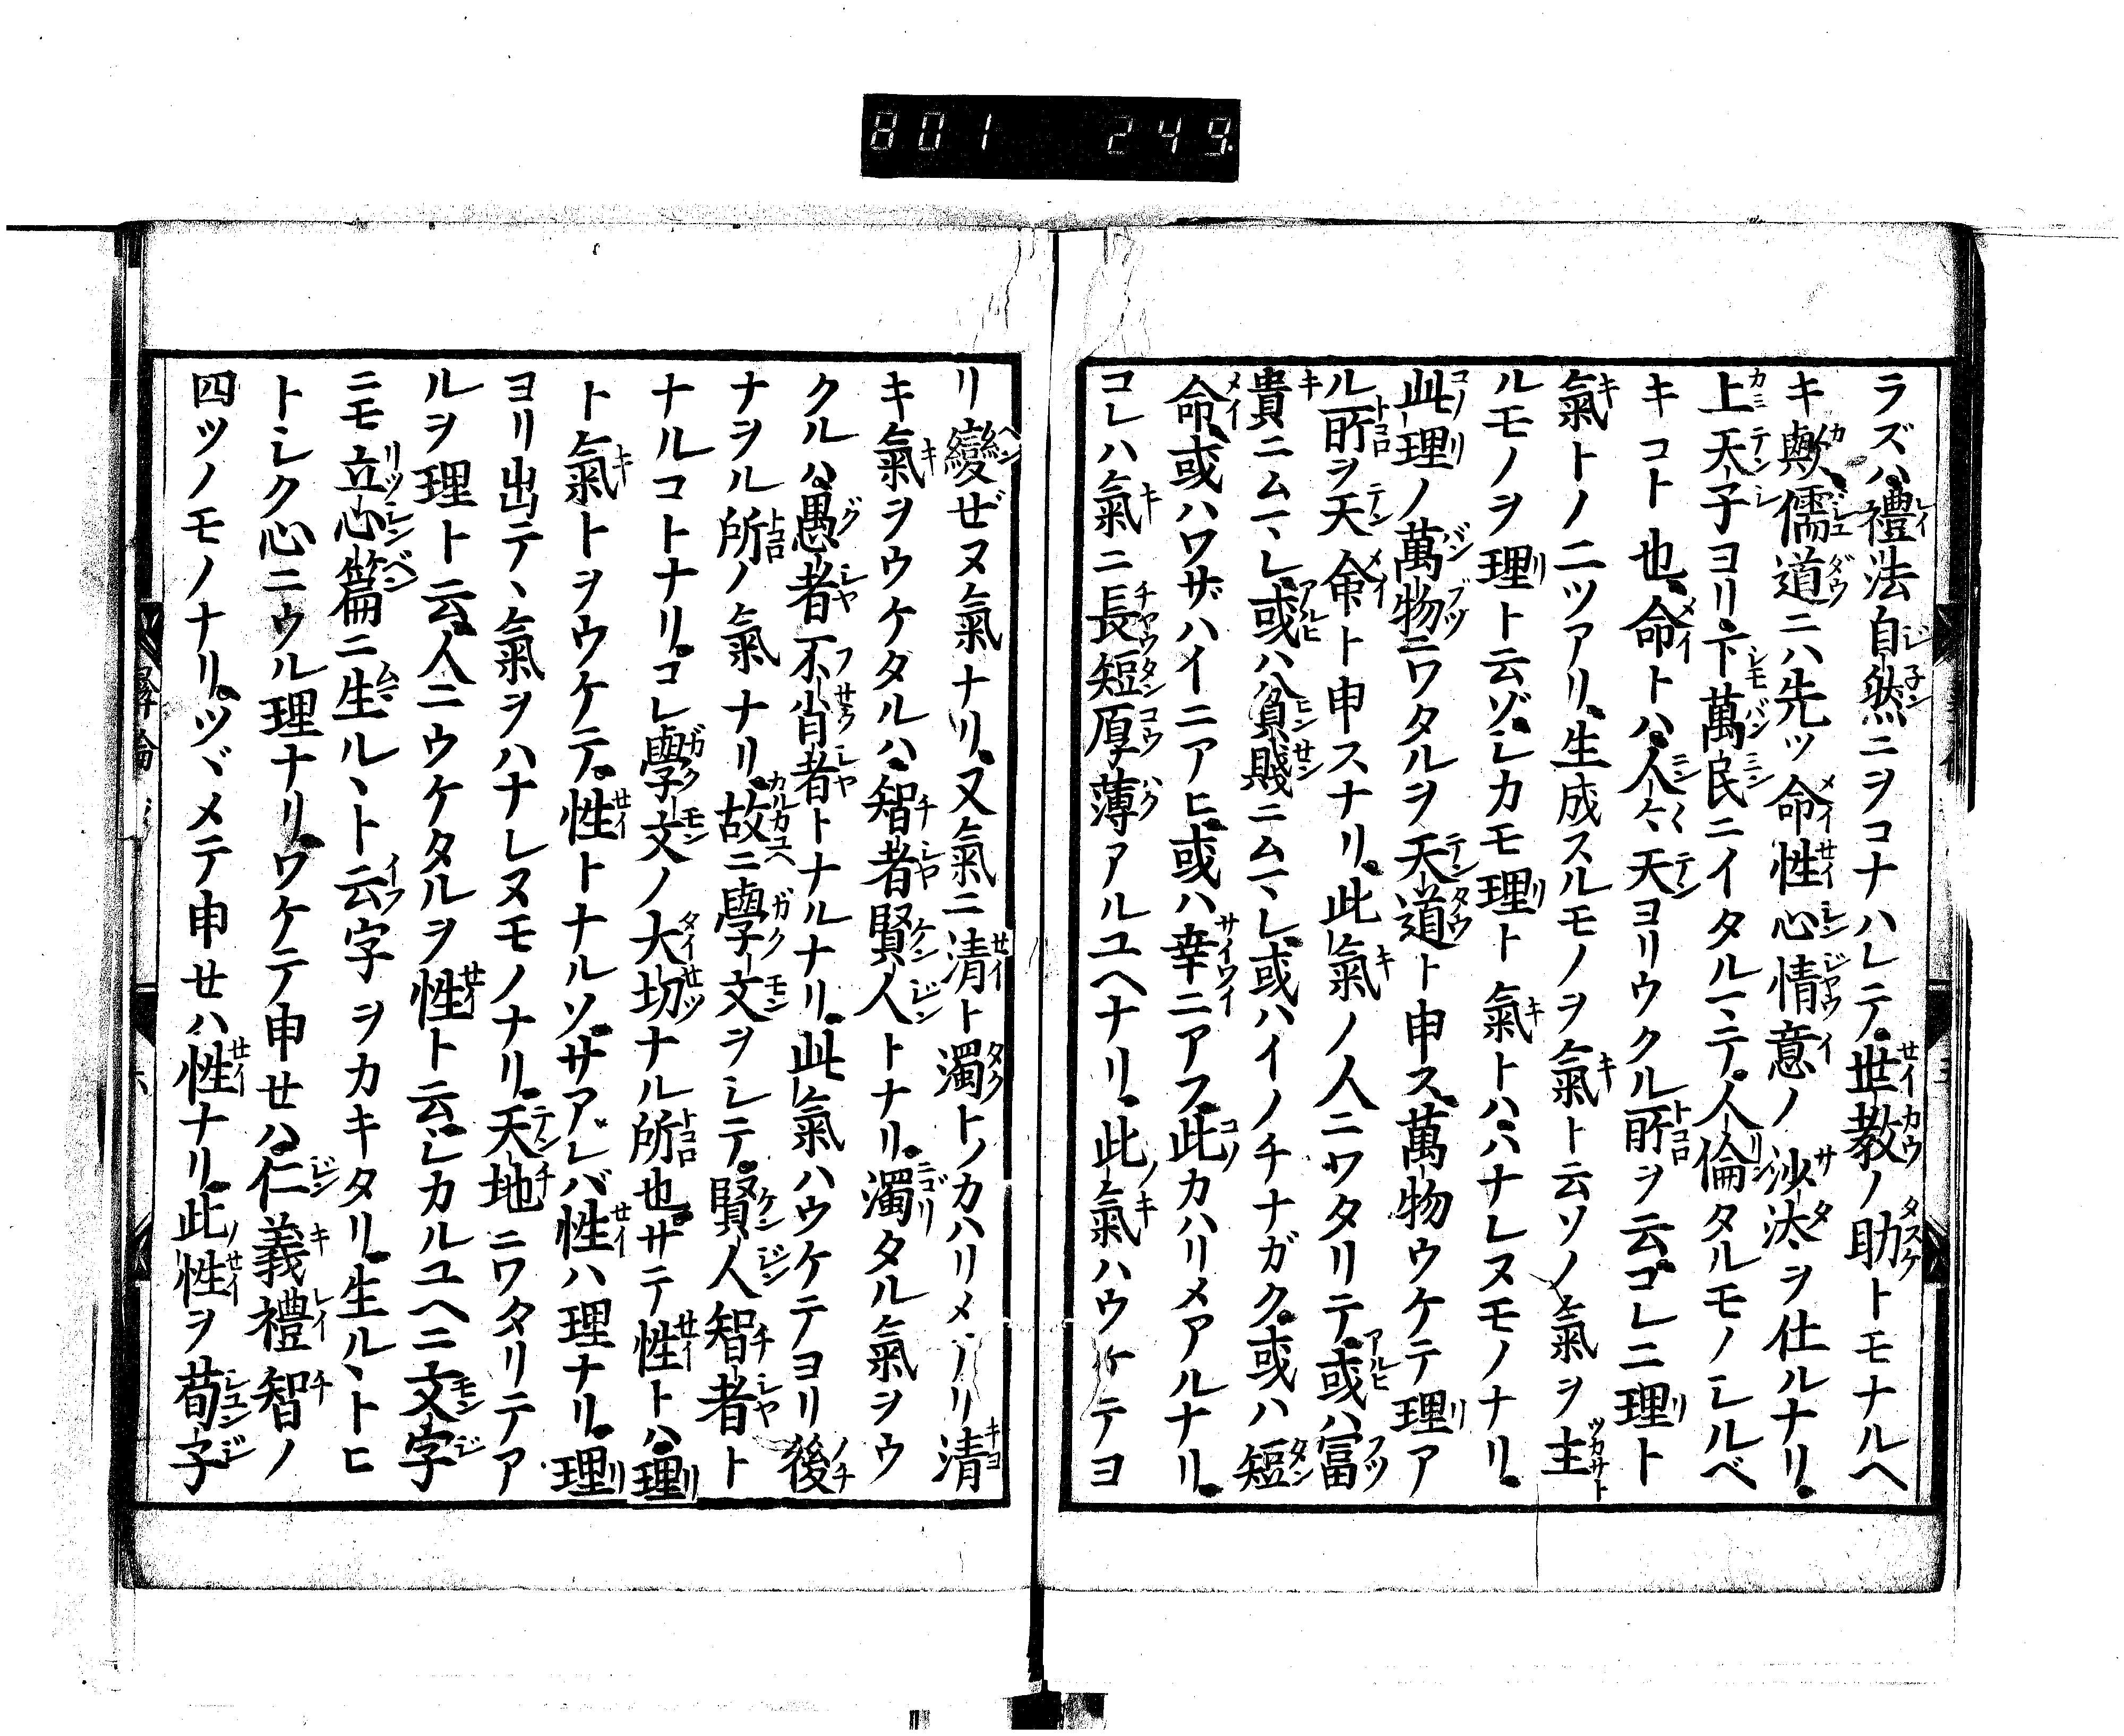 801 249
ラズハ、禮法自然ニヲコナハレテ。世教ノ助トモナルヘ
キ歟、儒道ニハ先ツ命性心情意ノ沙汰ヲ仕ルナリ。
上天子ヨリ。下萬民ニイタルマテ。人倫タルモノヽシルベ
キコト也、命トハ、人々天ヨリウクル所ヲ云。コレニ理ト
氣トノ二ツアリ、生成スルモノヲ氣ト云ソノ氣ヲ主
ルモノヲ理ト云ゾ。シカモ理ト氣トハ、ハナレヌモノナリ。
此理ノ萬物ニワタルヲ天道ト申ス。萬物ウケテ理ア
ル所ヲ天命ト申スナリ。此氣ノ人ニワタリテ。或ハ冨
貴ニムマレ。或ハ貧賤ニムマレ。或ハイノチナガク。或ハ短
命、或ハワザハイニアヒ。或ハ幸ニアフ。此カハリメアルナリ。
コレハ氣ニ長短厚薄アルユヘナリ。此氣ハウケテヨ
リ變ゼヌ氣ナリ。又氣ニ清ト濁トノカハリメアリ清
キ氣ヲウケタルハ、智者賢人トナリ。濁タル氣ヲウ
クルハ、愚者不肖者トナルナリ。此氣ハウケテヨリ後
ナヲル所ノ氣ナリ。故ニ學文ヲシテ。賢人智者ト
ナルコトナリ。コレ學文ノ大切ナル所也。サテ性トハ、理
ト氣トヲウケテ。性トナルソ。サアレバ性ハ理ナリ。理
ヨリ出テヽ氣ヲハナレヌモノナリ。天地ニワタリテア
ルヲ理ト云。人ニウケタルヲ性ト云。シカルユヘニ文字
ニモ立心篇ニ生ルヽト云字ヲカキタリ。生ルヽトヒ
トシク心ニウル理ナリ。ワケテ申セハ、仁義禮智ノ
四ツノモノナリ。ツヾメテ申セハ性ナリ。此性ヲ荀子